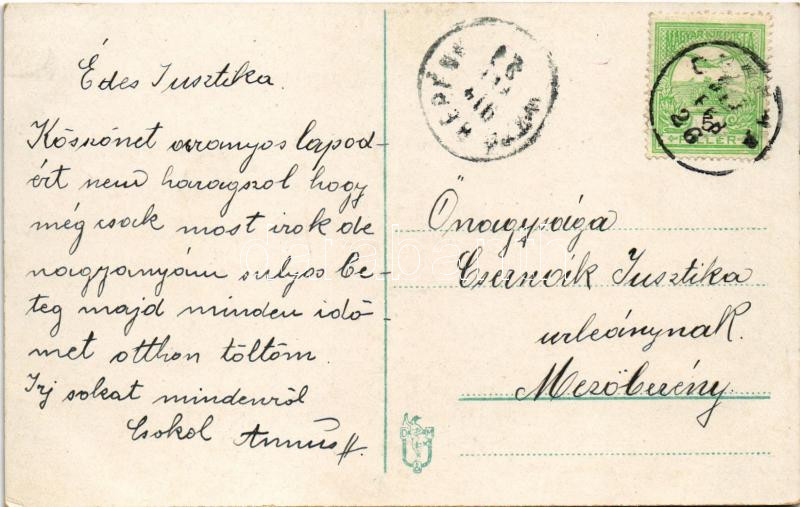 Édes Jusztika.
Köszönet aranyos lapod-
ért nem haragszol hogy
még csak most irok de
nagyanyám sulyos be-
teg majd minden idő-
met otthon töltöm.
Irj sokat mindenről
Csokol Annus
MAGYAR KIR. POSTA
FILLÉR
26
914
27
Őnagysága
Csernák Jusztika
urleánynak.
Mezőberény
D M